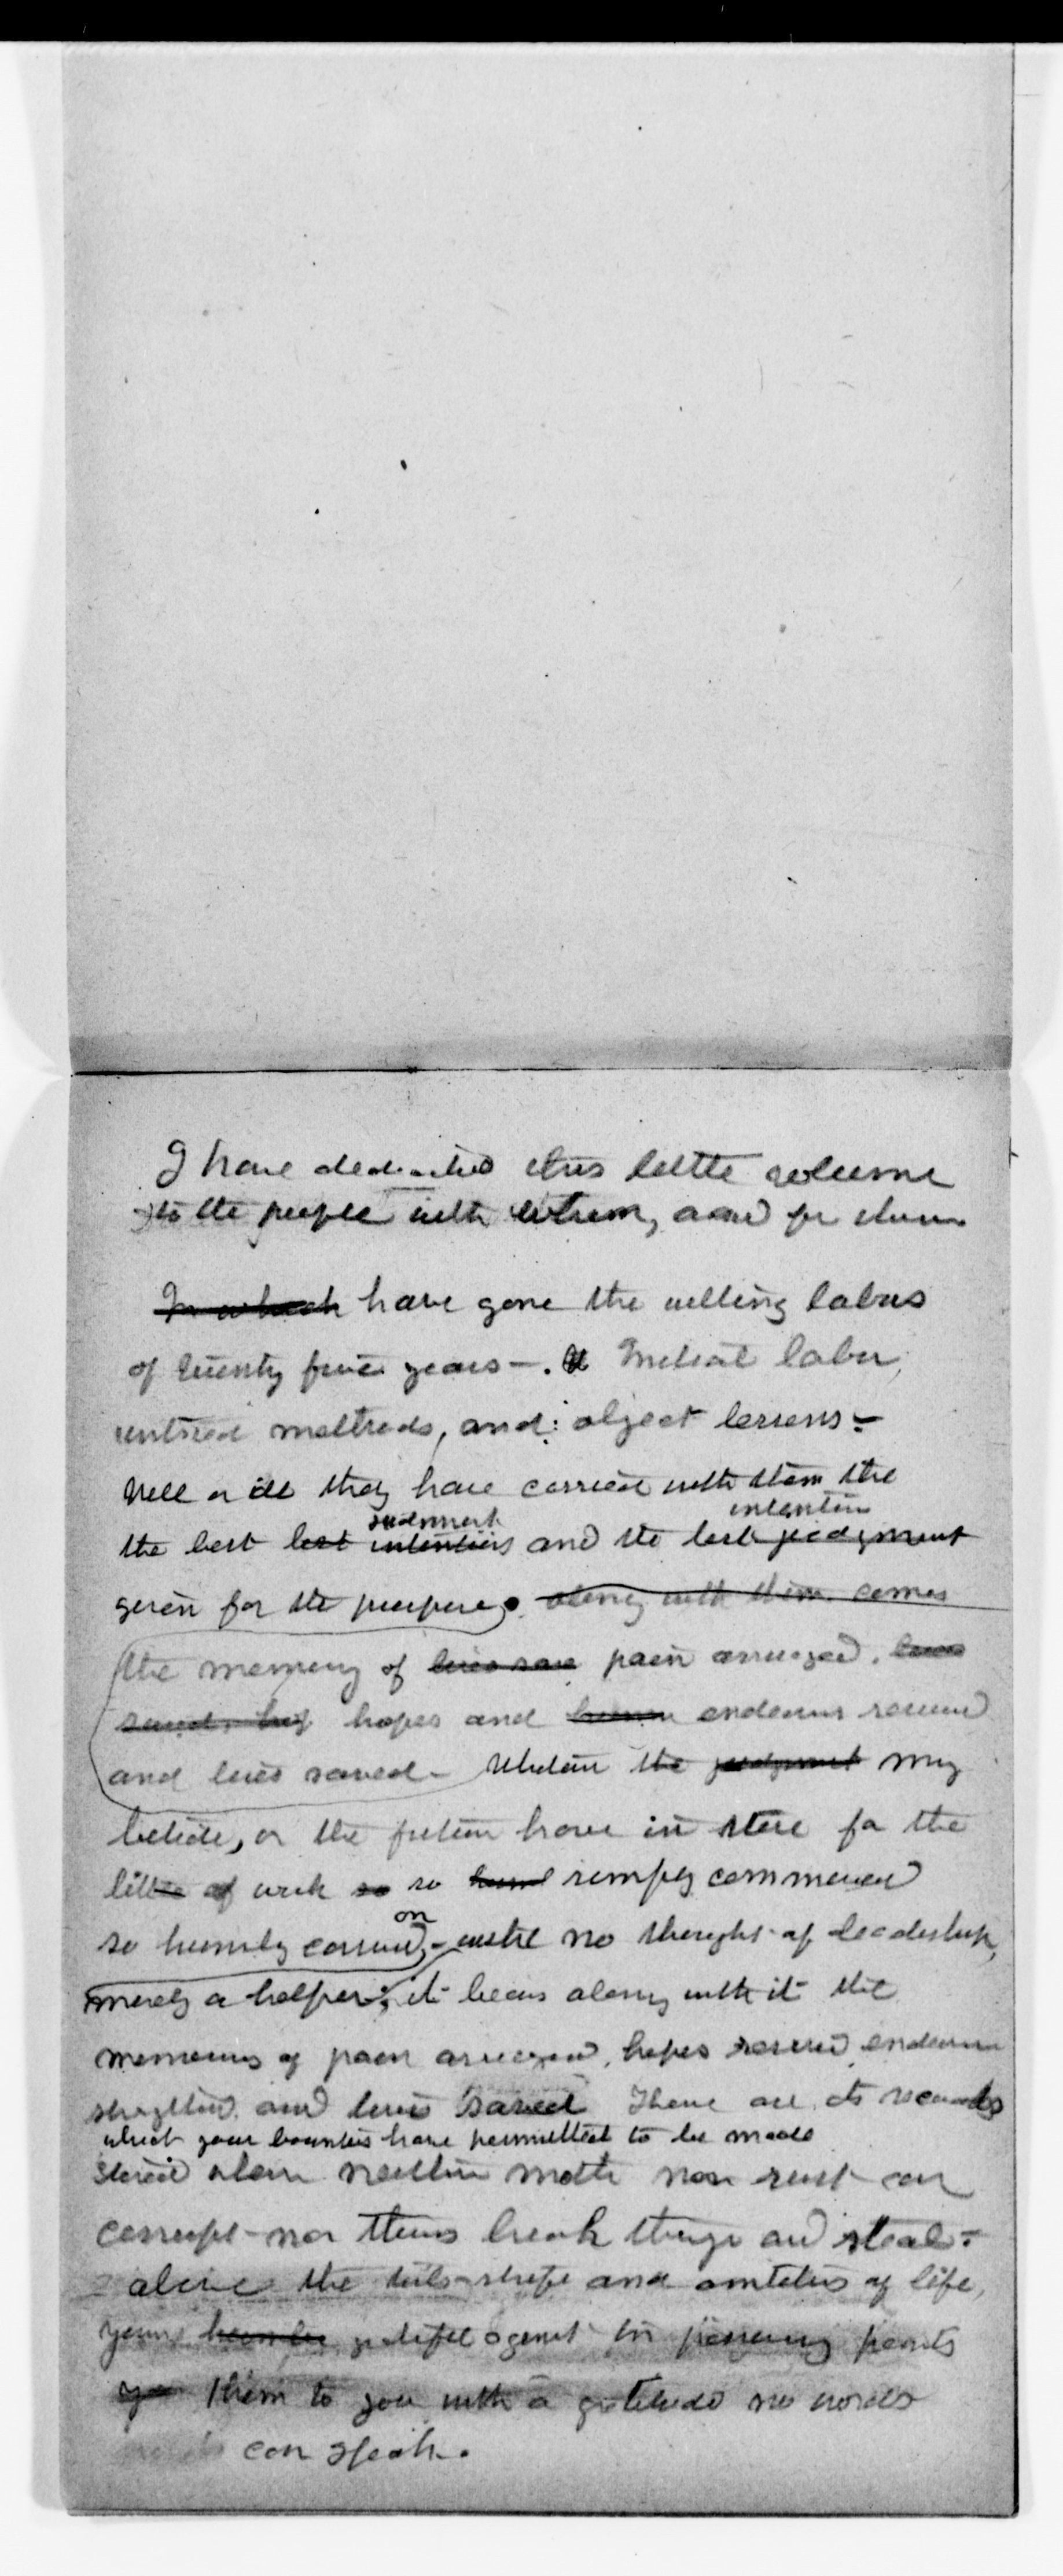 I have dedicated this little volume
to the people with whom, and for whom
In which have gone the willing labors
of twenty five years—. initial labor,
untried methods, and object lessons—
Well or ill they have carried with them the
judgment intention
the best best intentions and the best judgment
given for the purpose, along with them comes
the memory of pain assuaged,
saved, hopes and endeavors
and lives saved— Whatever the judgment may
betide, or the future have in store for the
little of work so so simply commenced
on
so humbly carried,— with no thought of leadership,
merely a helper; it bears along with it the
memories of pain assuaged, hopes revived endeavor
strengthened and lives saved These are its records
which your bounties have permitted to be made
stored where neither moth nor rust can
corrupt nor thieves break through and steal—
above the toils strife and of life,
your humble grateful agent in passing points
them to you with a gratitude no words
can speak.